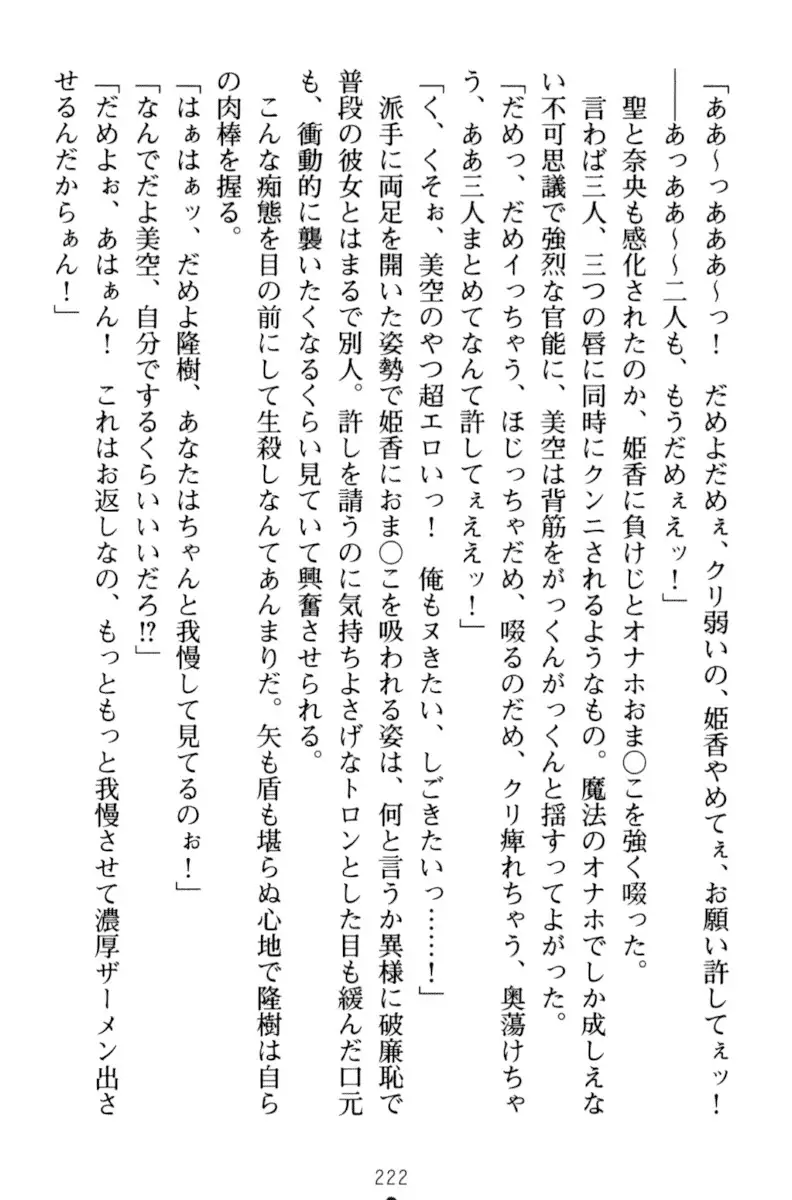 「ああ～っあああ～っ！　だめよだめぇ、クリ弱いの、姫香やめてぇ、お願い許してぇッ！
――あっああ～～二人も、もうだめぇえッ！」
　聖と奈央も感化されたのか、姫香に負けじとオナホおま〇こを強く啜った。
　言わば三人、三つの唇に同時にクンニされるようなもの。魔法のオナホでしか成しえな
い不可思議で強烈な官能に、美空は背筋をがっくんがっくんと揺すってよがった。
「だめっ、だめイっちゃう、ほじっちゃだめ、啜るのだめ、クリ痺れちゃう、奥蕩けちゃ
う、ああ三人まとめてなんて許してぇええッ！」
「く、くそぉ、美空のやつ超エロいっ！　俺もヌきたい、しごきたいっ……！」
　派手に両足を開いた姿勢で姫香におま〇こを吸われる姿は、何と言うか異様に破廉恥で
普段の彼女とはまるで別人。許しを請うのに気持ちよさげなトロンとした目も緩んだ口元
も、衝動的に襲いたくなるくらい見ていて興奮させられる。
　こんな痴態を目の前にして生殺しなんてあんまりだ。矢も盾も堪らぬ心地で隆樹は自ら
の肉棒を握る。
「はぁはぁッ、だめよ隆樹、あなたはちゃんと我慢して見てるのぉ！」
「なんでだよ美空、自分でするくらいいいだろ!?」
「だめよぉ、あはぁん！　これはお返しなの、もっともっと我慢させて濃厚ザーメン出さ
せるんだからぁん！」
222